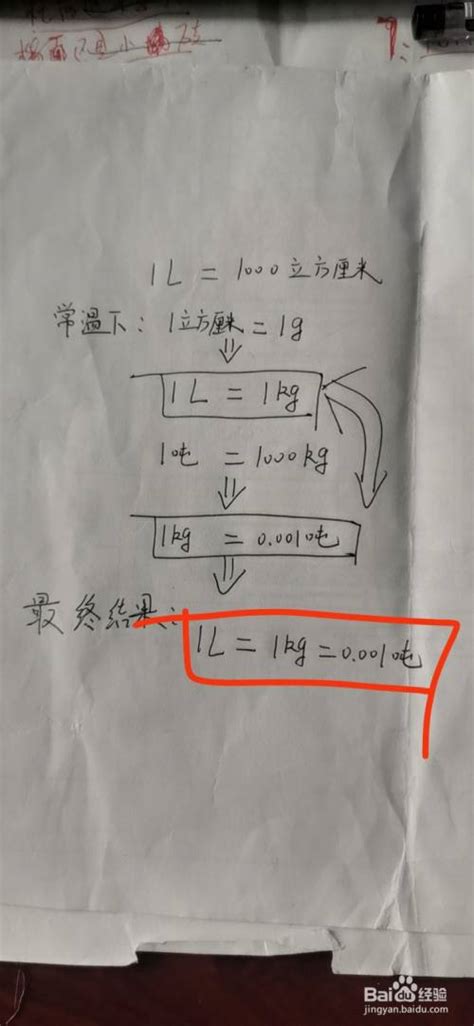 1L = 1000立方厘米
常温下: 1立方厘米 = 1g
1L = 1kg
1吨 = 1000kg
1kg = 0.001吨
最终结果:
1L = 1kg = 0.001吨
Bai du 经验
jingyan.baidu.com